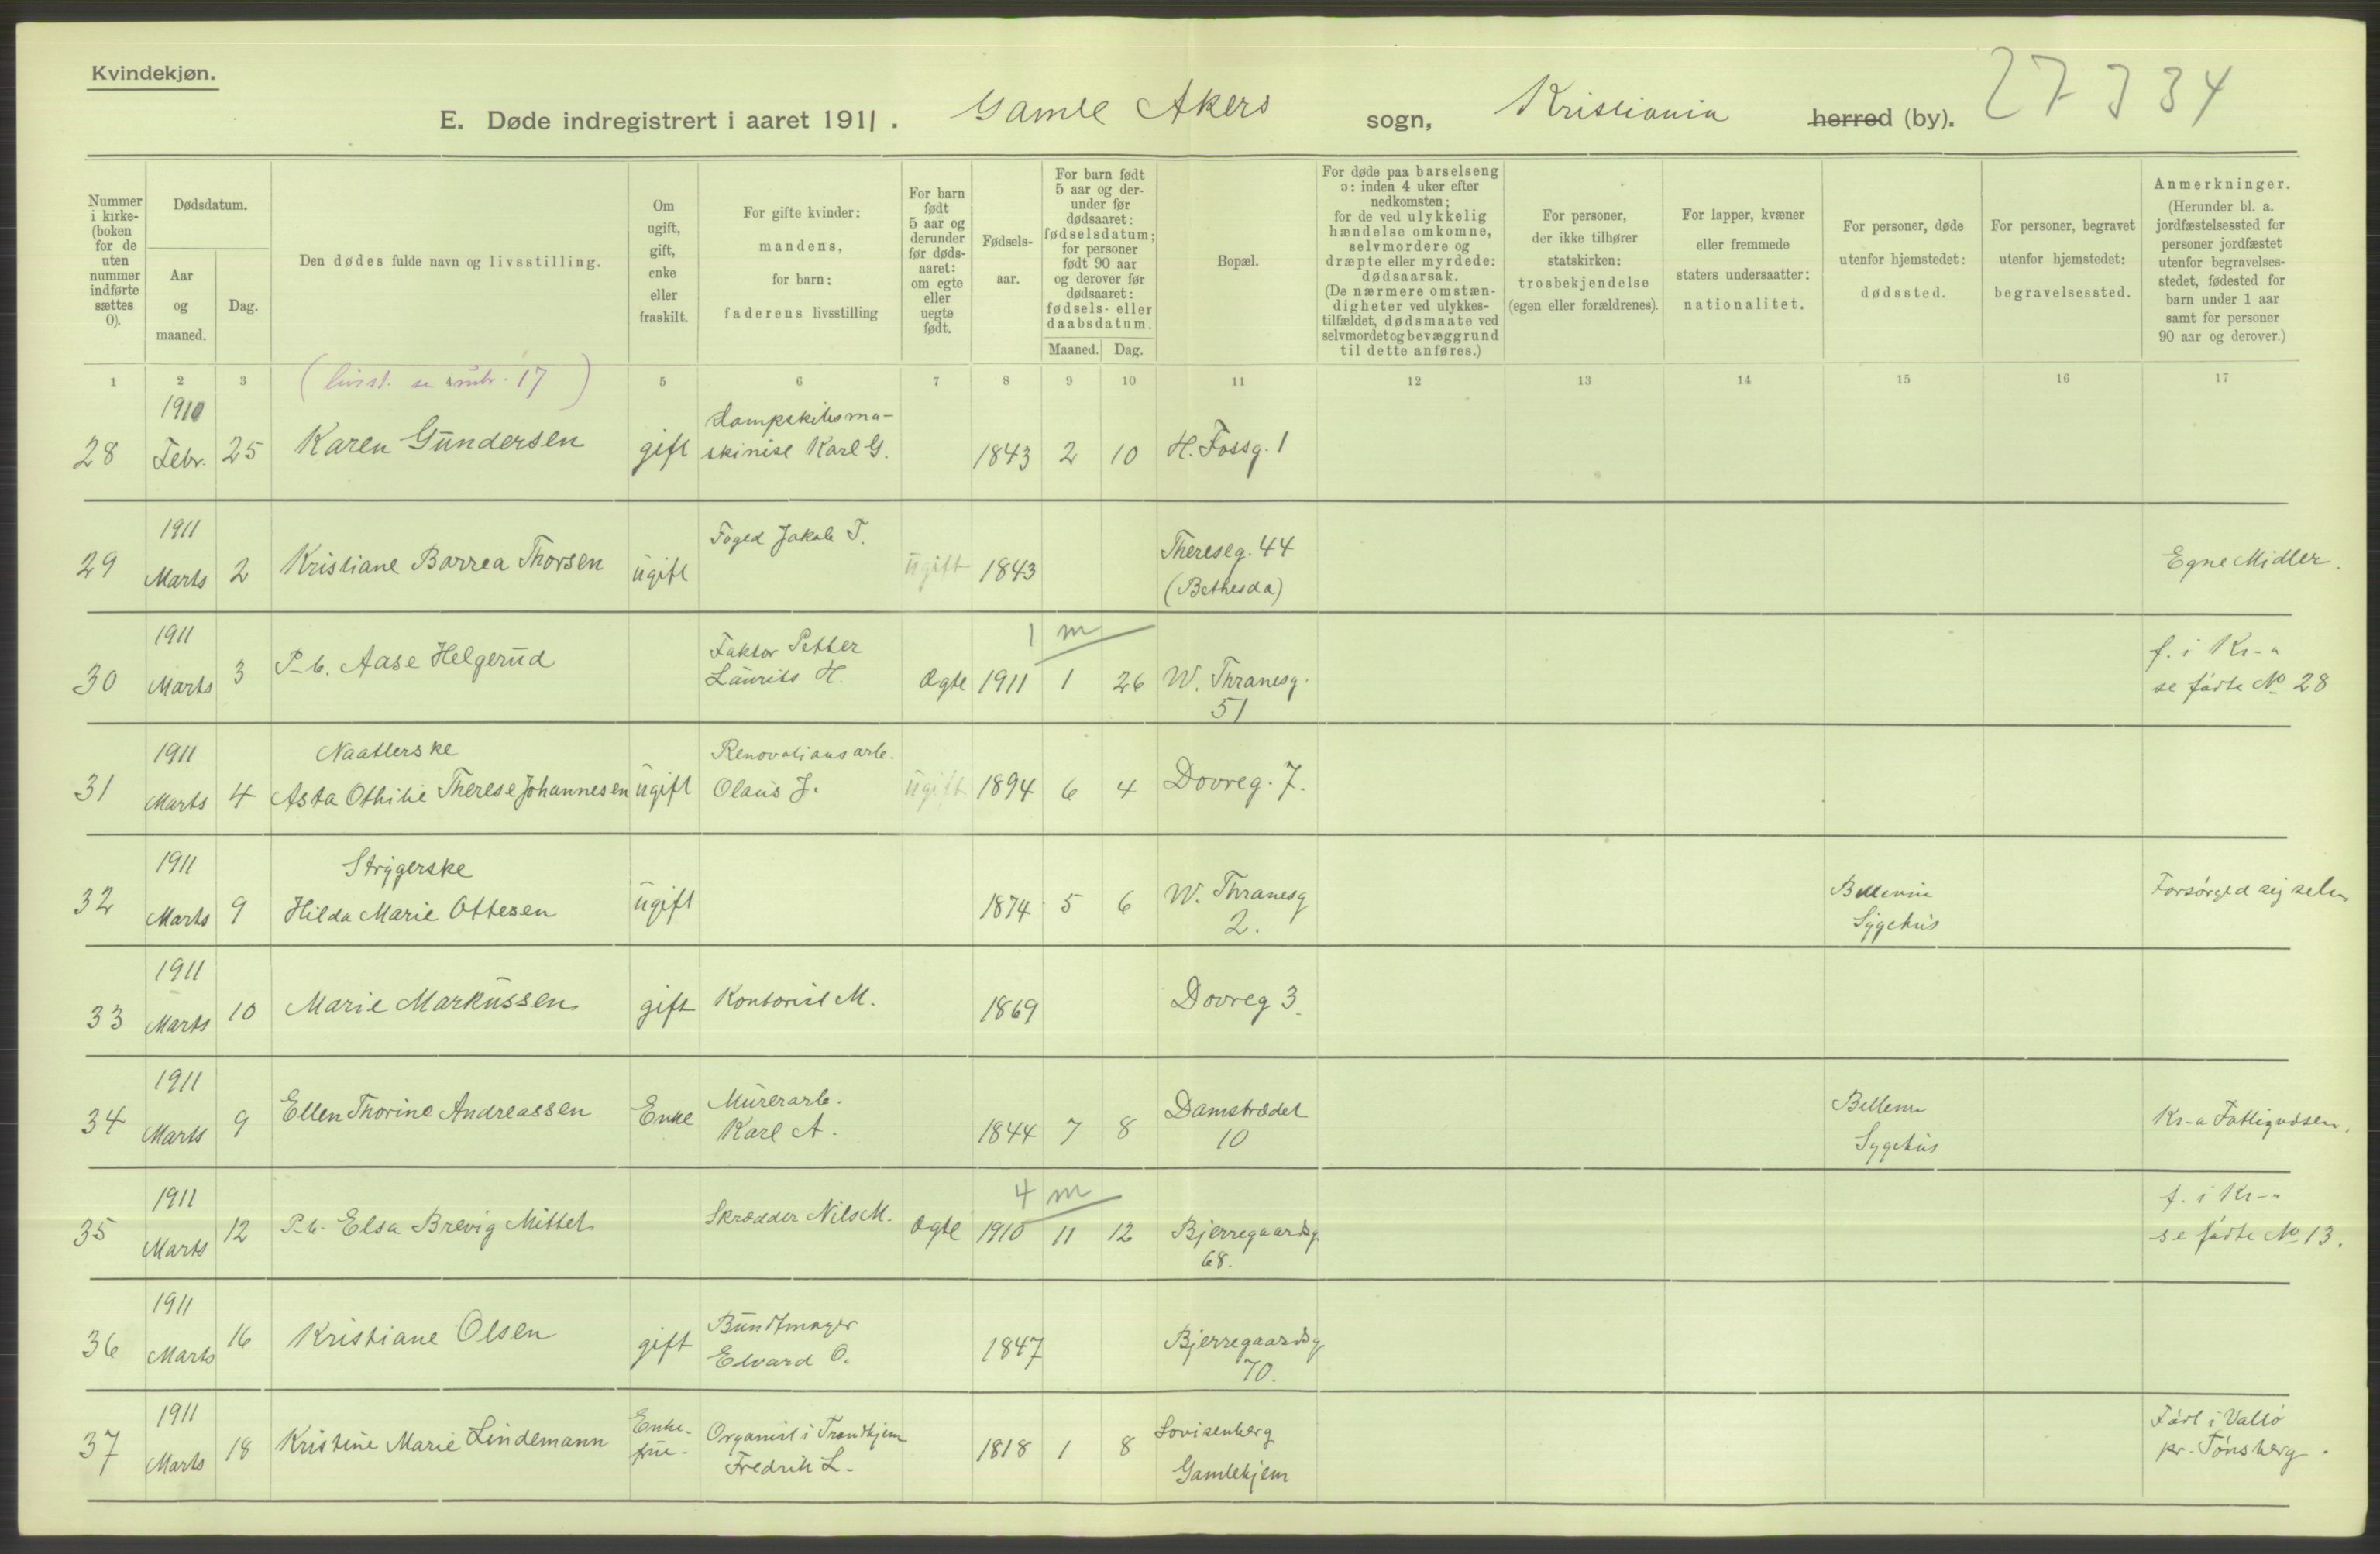 Kvindekjøn.
E. Døde indregistrert i aaret 1911. Gamle Akers sogn, Kristiania herred (by). 27 3 34
Nummer i kirkeboken (for de uten nummer indførte sættes 0).
Dødsdatum.
Aar og maaned.
Dag.
Den dødes fulde navn og livsstilling.
Om ugift, gift, enke eller fraskilt.
For gifte kvinder: mandens, for barn: faderens livsstilling
For barn født 5 aar og derunder før dødsaaret: om egte eller uegte født.
Fødselsaar.
For barn født 5 aar og derunder før dødsaaret: fødselsdatum; for personer født 90 aar og derover før dødsaaret: fødsels- eller daabsdatum.
Maaned. Dag.
Bopæl.
For døde paa barselseng ɔ: inden 4 uker efter nedkomsten; for de ved ulykkelig hændelse omkomne, selvmordere og dræpte eller myrdede: dødsaarsak. (De nærmere omstændigheter ved ulykkestilfældet, dødsmaate ved selvmordet og bevæggrund til dette anføres.)
For personer, der ikke tilhører statskirken: trosbekjendelse (egen eller forældrenes).
For lapper, kvæner eller fremmede staters undersaatter: nationalitet.
For personer, døde utenfor hjemstedet: dødssted.
For personer, begravet utenfor hjemstedet: begravelsessted.
Anmerkninger. (Herunder bl. a. jordfæstelsessted for personer jordfæstet utenfor begravelsesstedet, fødested for barn under 1 aar samt for personer 90 aar og derover.)
1 2 3 (livsst. se rubr. 17) 5 6 7 8 9 10 11 12 13 14 15 16 17
1910 Dampskibsma-
28 Febr. 25 Karen Gundersen gift skinist Karl G. 1843 2 10 H. Fossg. 1
1911 Foged Jakob T. Thereseg. 44
29 Marts 2 Kristiane Borrea Thorsen ugift ugift 1843 (Bethesda) Egne Midler.
1911 Faktor Petter 1 m f. i Kr-a
30 Marts 3 P-b. Aase Helgerud Laurits H. Ægte 1911 1 26 W. Thranesg. 51 se fødte No 28
1911 Naatlerske Renovationsarb.
31 Marts 4 Asta Othilie Therese Johannesen ugift Olaus J. ugift 1894 6 4 Dovreg. 7.
1911 Strygerske
32 Marts 9 Hilda Marie Ottesen ugift 1874 5 6 W. Thranesg 2. Sygehus Forsørged sig selv
1911
33 Marts 10 Marie Markussen gift Kontorist M. 1869 Dovreg 3.
1911 Murerarb.
34 Marts 9 Ellen Thorine Andreassen Enke Karl A. 1844 7 8 Damstrædet 10 Sygehus Kr-a Fattigvæsen.
1911 4 m f. i Kr-a
35 Marts 12 P-b. Elsa Brevig Mittet Skrædder Nils M. Ægte 1910 11 12 Bjerregaardsg 68. se fødte No 13.
1911 Buntmager
36 Marts 16 Kristiane Olsen gift Edvard O. 1847 Bjerregaardsg 70.
1911 Enke- Organist i Trondhjem Lovisenberg Født i Vallø
37 Marts 18 Kristine Marie Lindemann frue. Fredrik L. 1818 1 8 Gamlehjem pr. Tønsberg.